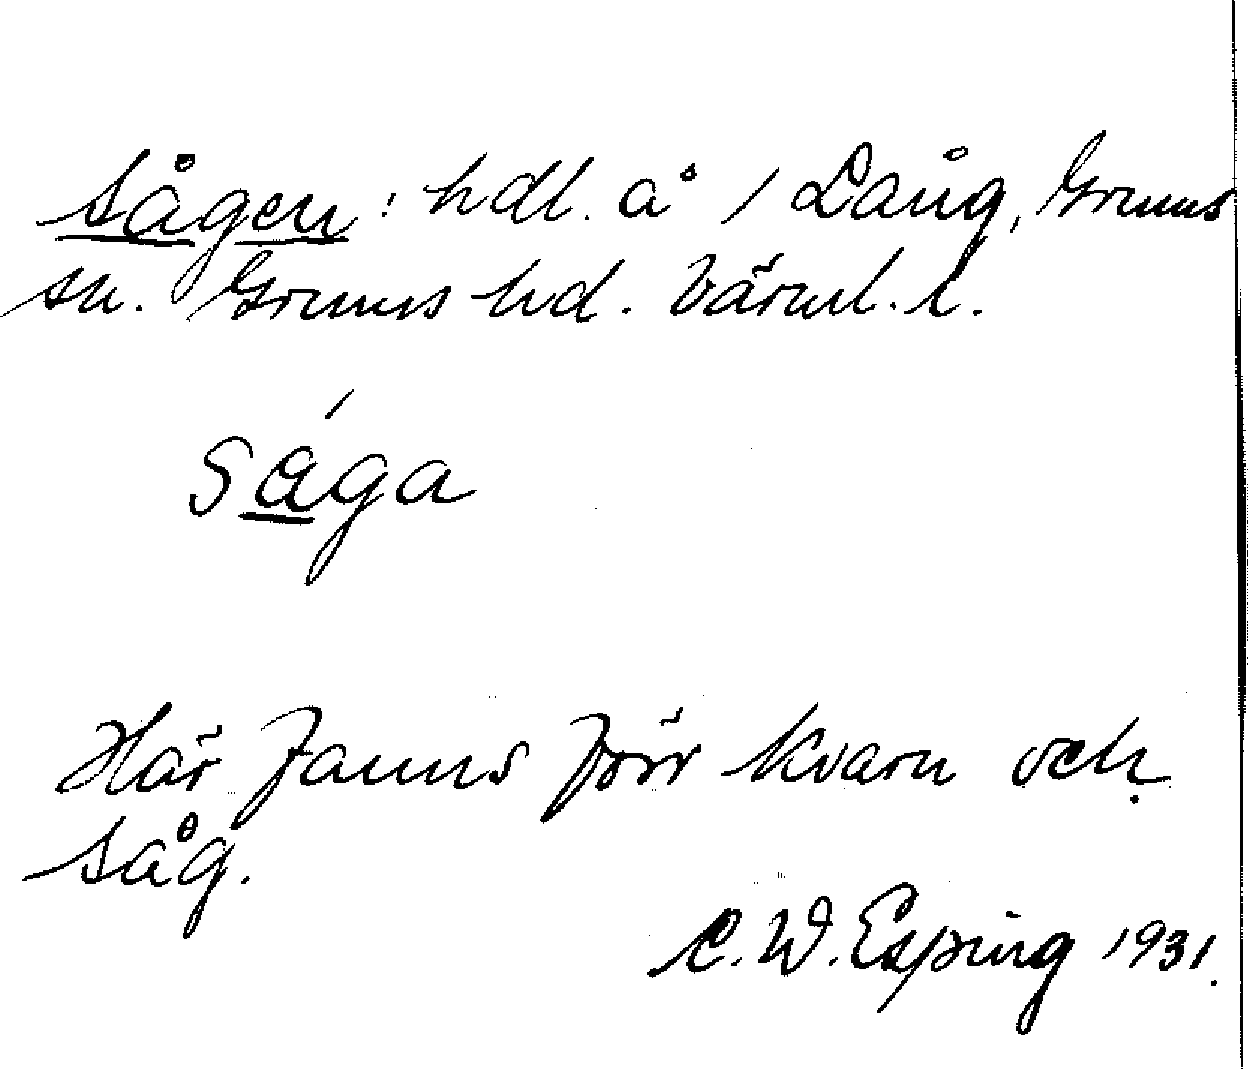 Sågen: hdl. å / Lång, Grums
sn. Grums hd. Värml. l.
såga
Här fanns förr kvarn och
såg.
C. W. Esping 1931.